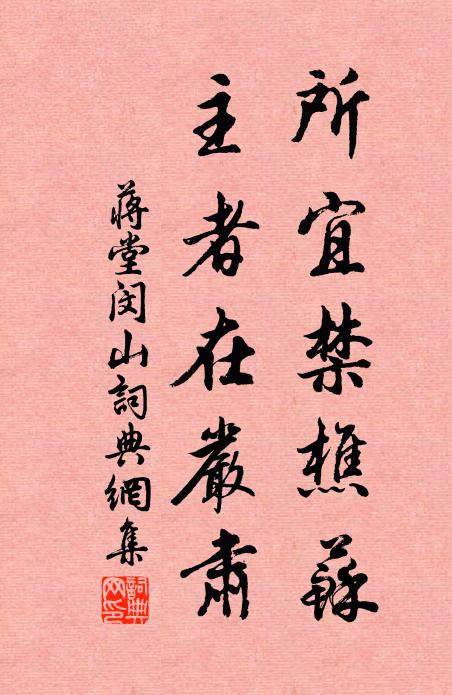 所宜禁樵蘇
主者在嚴肅
蔣堂閔山詞典網集
詞典網印